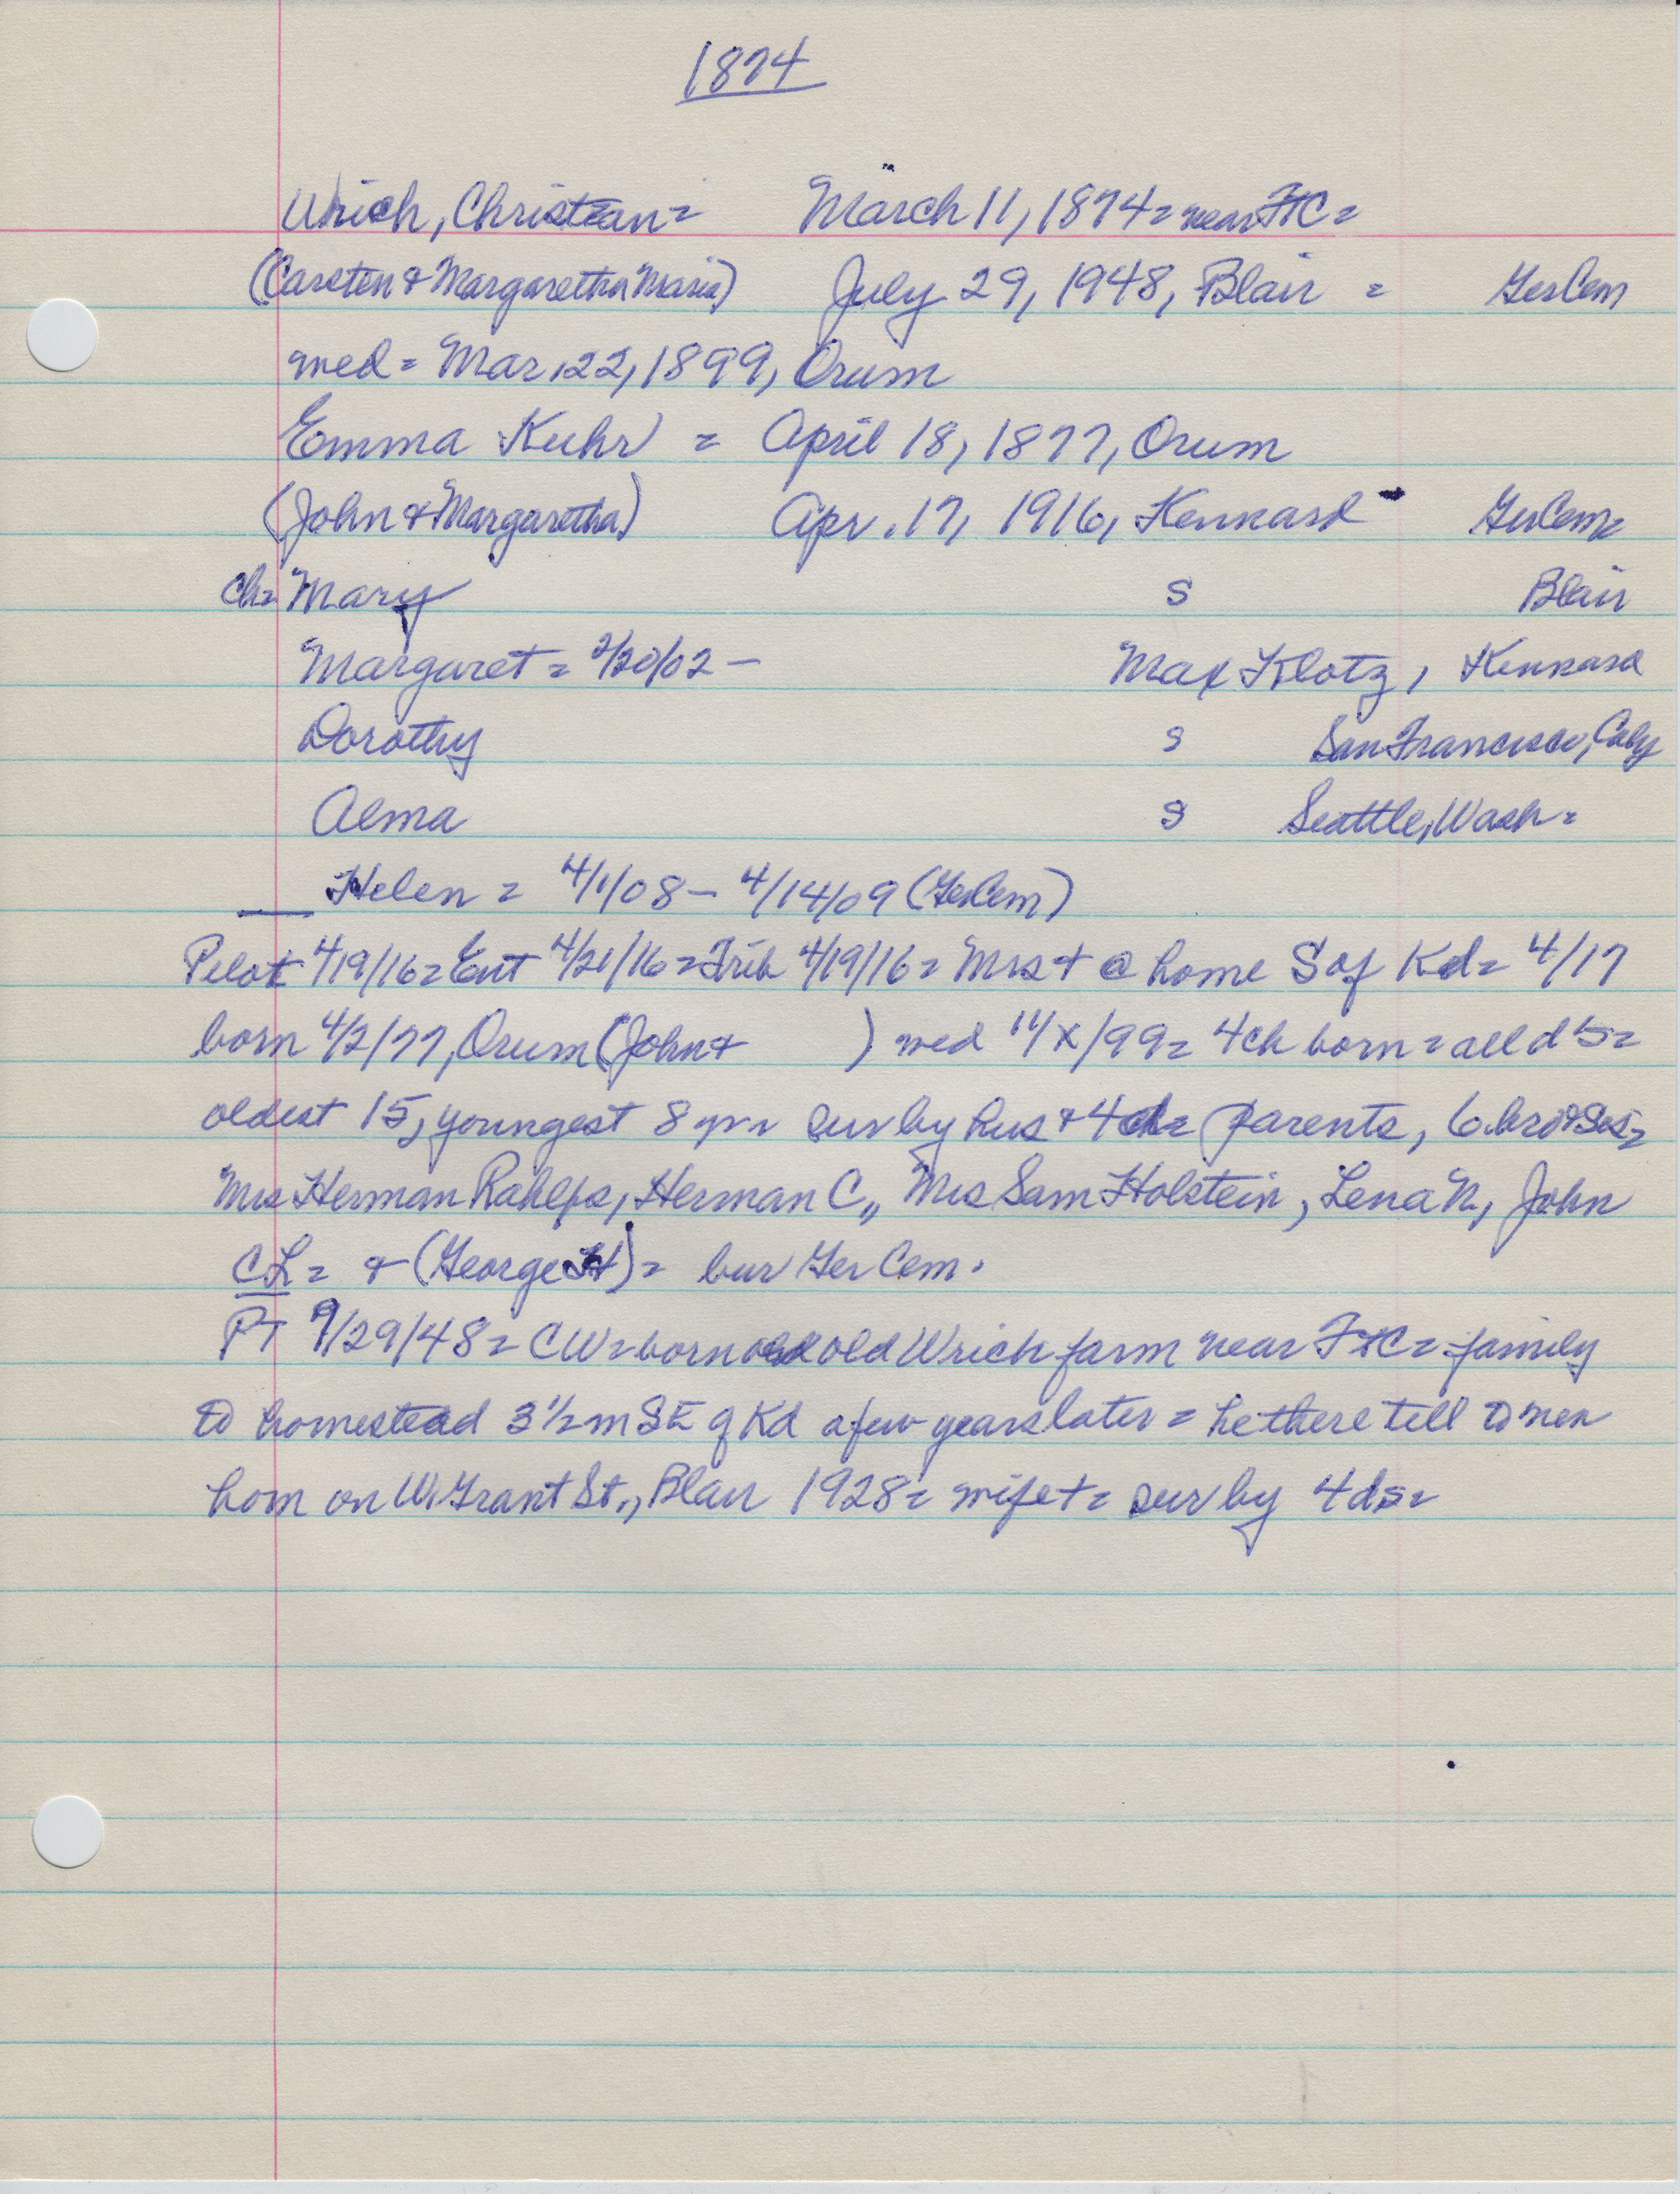 1874
Wrich, Christian = March 11, 1874 = near FtC =
(Carsten & Margaretha Maria) July 29, 1948, Blair = GerCem
med = Mar. 22, 1899, Orum
Emma Kuhr = April 18, 1877, Orum
(John & Margaretha) Apr. 17, 1916, Kennard - GerCem =
ch = Mary S Blair
Margaret = 2/20/02 - Max Klotz, Kennard
Dorothy S San Francisco,
Alma S Seattle, Wash =
Helen = 4/1/08 - 4/14/09 (GerCem)
Pilot 4/19/16 = Ent 4/21/16 = Trib 4/19/16 = Mrs + @ home S of Kd = 4/17
born 4/2/77, Orum (John + ) med 11/X/99 = 4ch born = all d's =
oldest 15, youngest 8 yr = sur by hus + 4ch = parents, 6 bro & sis =
Mrs Herman Rahlfs, Herman C., Mrs Sam Holstein, Lena N., John
CL = & (George H) = bur Ger Cem.
PT 9/29/48 = CW = born old Wrich farm near FtC = family
to homestead 3 1/2 m SE of Kd a few years later = he there till to new
hom on W. Grant St., Blair 1928 = wife + = sur by 4 ds =